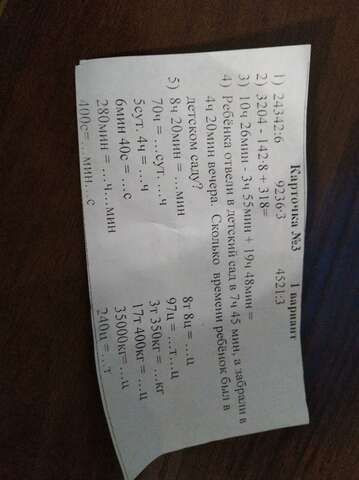 Карточка №3 1 вариант
1) 24342:6 9236·3 4521:3
2) 3204 - 142·8 + 318=
3) 10ч 26мин - 3ч 55мин + 19ч 48мин =
4) Ребёнка отвели в детский сад в 7ч 45 мин, а забрали в
4ч 20мин вечера. Сколько времени ребёнок был в
детском саду?
5) 8ч 20мин = …мин 8т 8ц = …ц
70ч = …сут. …ч 97ц = …т…ц
5сут. 4ч = …ч 3т 350кг = …кг
6мин 40с = …с 17т 400кг = …ц
280мин = …ч…мин 35000кг= …ц
400с= …мин…с 240ц = …т